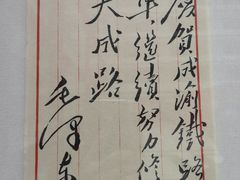 庆贺成渝铁路
继续努力修
天成路
毛泽东